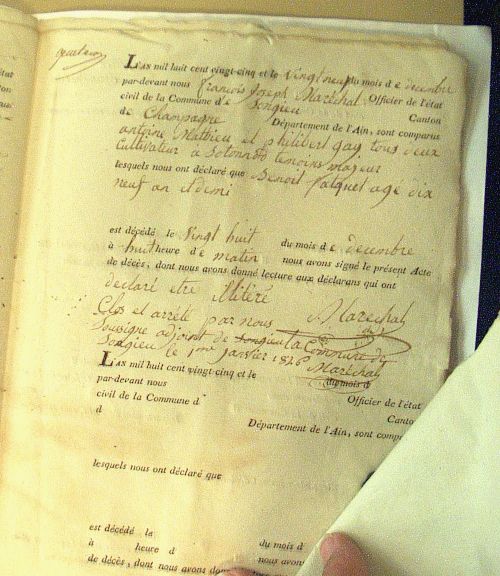 L'an mil huit cent vingt-cinq et le vingt neuf du mois de decembre
par-devant nous françois Joseph Maréchal Officier de l'état
civil de la Commune de Songieu Canton
de Champagne Département de l'Ain, sont comparus
antoine Mathieu et philibert gay tous deux
Cultivateur a Sotonod temoins majeur
lesquels nous ont déclaré que Benoit falquet age dix
neuf an et demi
est décédé le vingt huit du mois de decembre
à huit heure de matin nous avons signé le présent Acte
de décès, dont nous avons donné lecture aux déclarans qui ont
declaré etre illiteré
Marechal
Clos et arrêté par nous
Soussigné adjoint de songieu la Commune de
Songieu le 1er janvier 1826 Maréchal
L'an mil huit cent vingt-cinq et le du mois d
par-devant nous Officier de l'état
civil de la Commune d Canton
d Département de l'Ain, sont comp
lesquels nous ont déclaré que
est décédé la du mois d
à heure d nous avons
de décès, dont nous avons donn